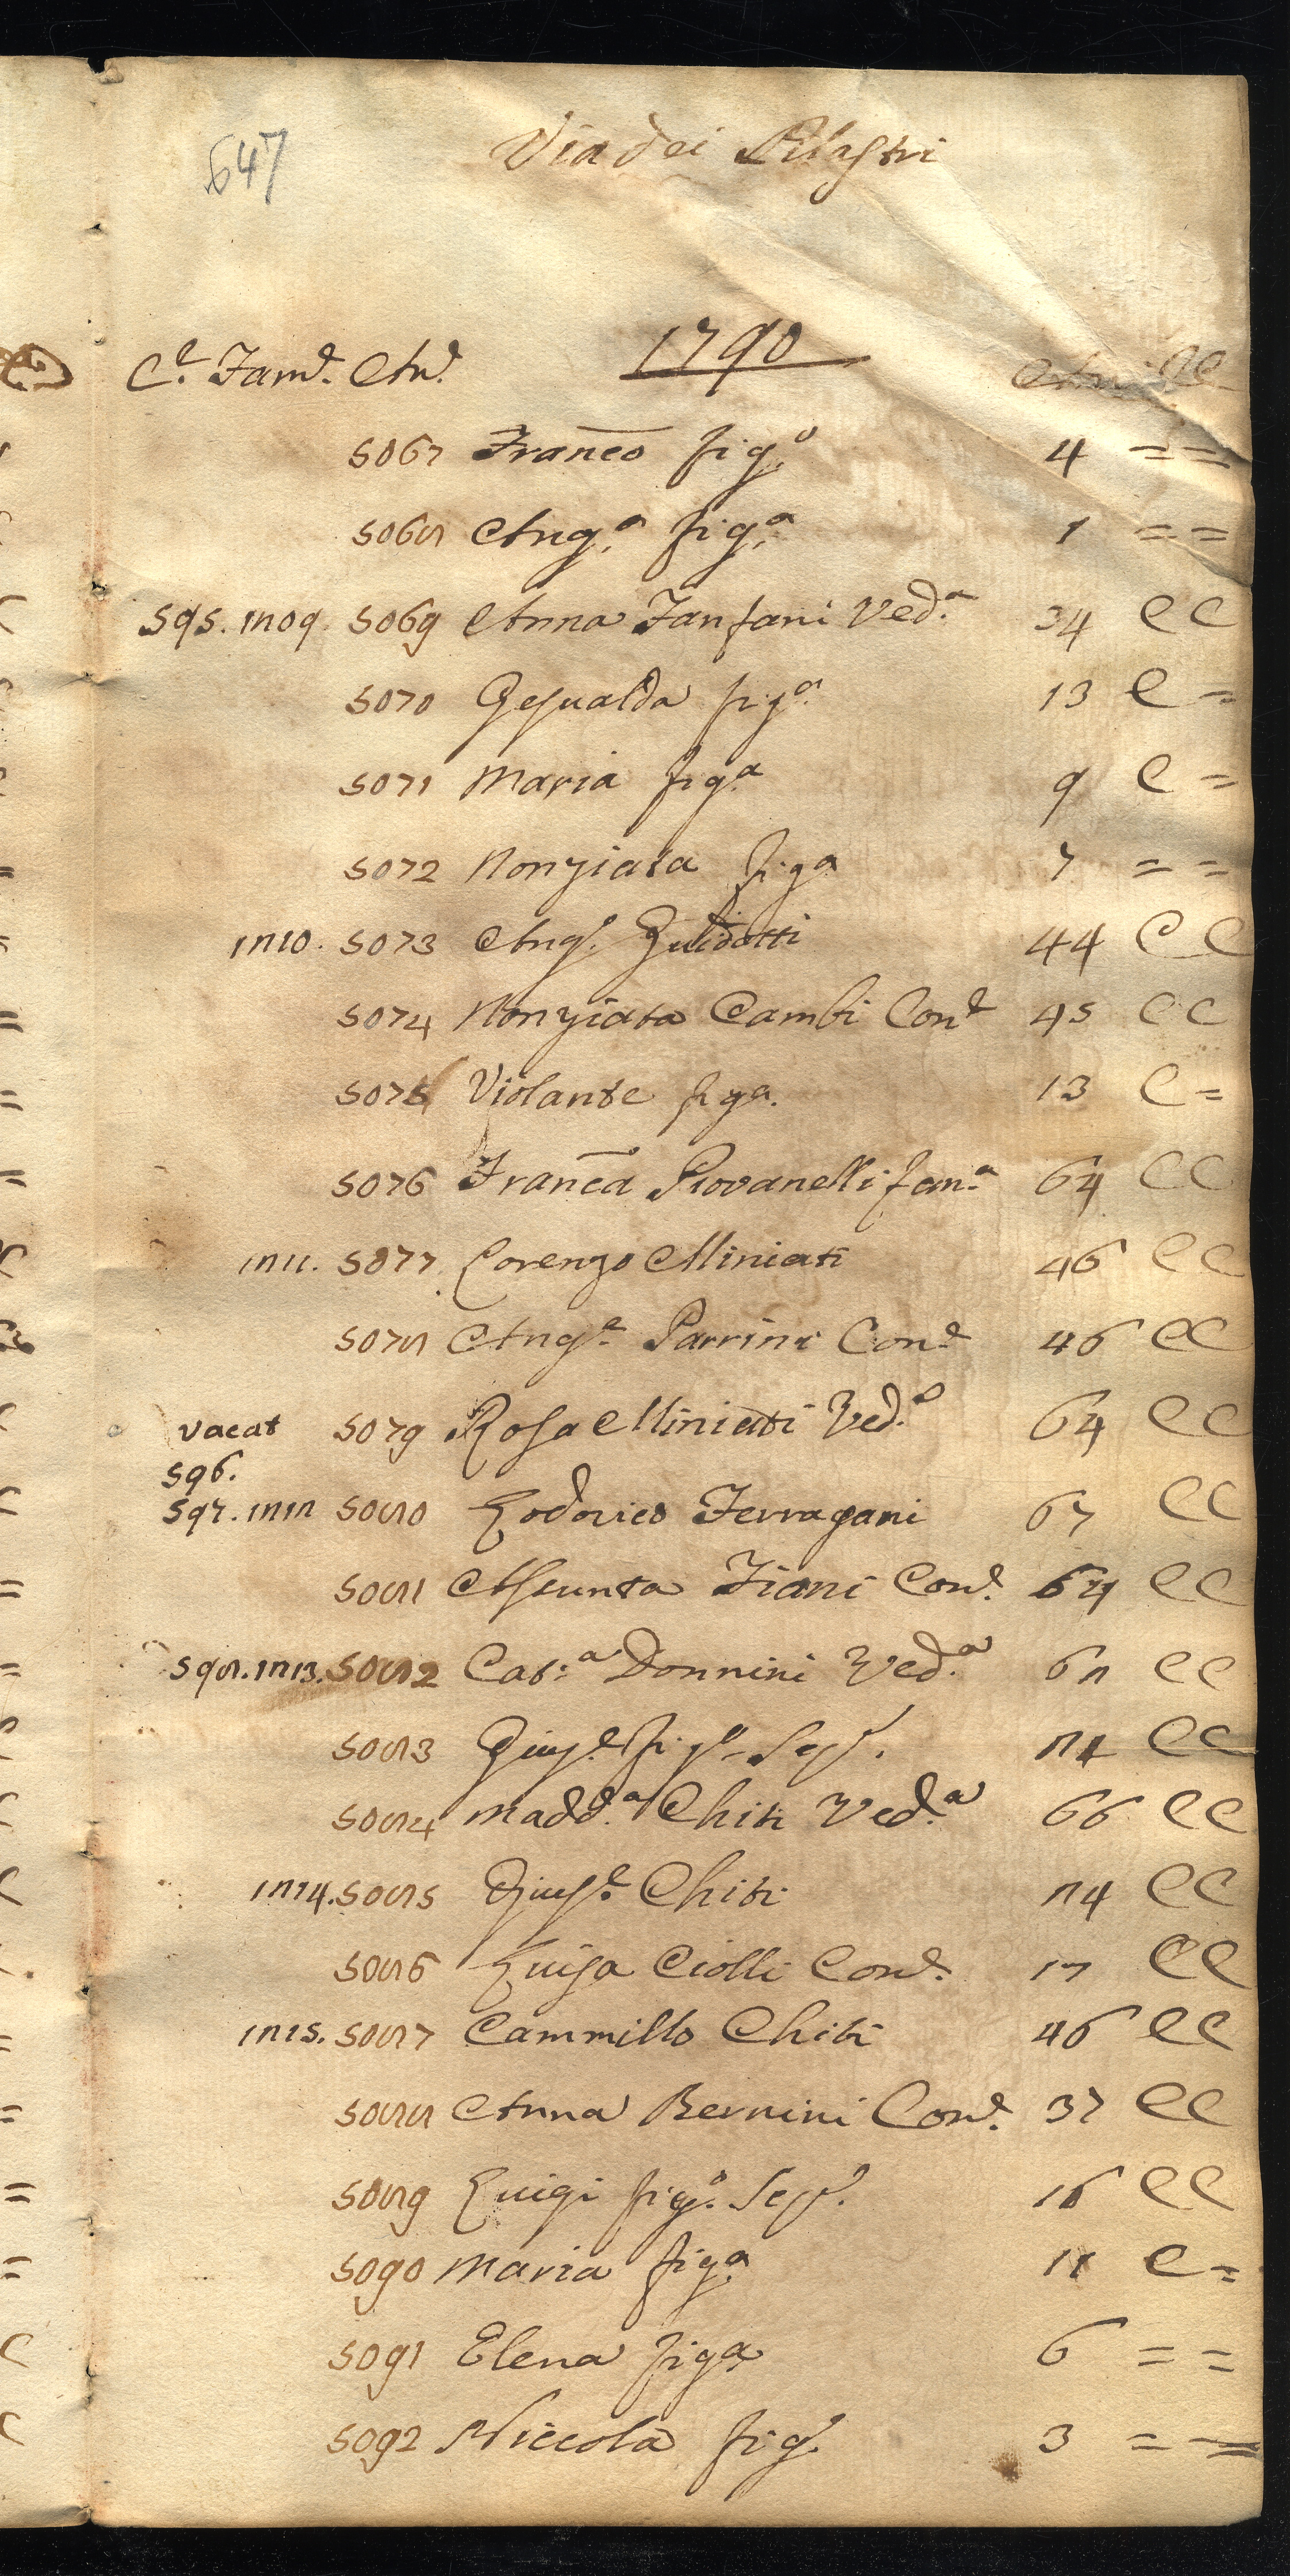 647
Via dei Pilastri
1790
C.e Fam.e An.e Anni CC
5067 Franco fig.o 4 = =
5068 Ang.a fig.a 1 = =
595. 1809. 5069 Anna Fanfani Ved.a 34 C C
5070 Gesualda fig.a 13 C =
5071 Maria fig.a 9 C =
5072 Nonziata fig.a 7 = =
1810. 5073 Ang.o Guidotti 44 C C
5074 Nonziata Cambi Con.e 45 C C
5075 Violante fig.a 13 C =
5076 Franca Piovanelli fam.a 64 C C
1811. 5077 Lorenzo Miniati 46 C C
5078 Ang.a Parrini Con.e 46 C C
vacat 5079 Rosa Miniati Ved.a 64 C C
596.
597. 1812 5080 Lodovico Ferragani 67 C C
5081 Assunta Fiani Con.e 64 C C
598. 1813. 5082 Cat.a Donnini Ved.a 68 C C
5083 Gius.e fig.o 84 C C
5084 Madd.a Chiti Ved.a 66 C C
1814. 5085 Gius.e Chiti 84 C C
5086 Luisa Ciolli Con.e 17 C C
1815. 5087 Cammillo Chiti 46 C C
5088 Anna Bernini Con.e 37 C C
5089 Luigi fig.o 16 C C
5090 Maria fig.a 11 C =
5091 Elena fig.a 6 = =
5092 Niccola fig.o 3 = =